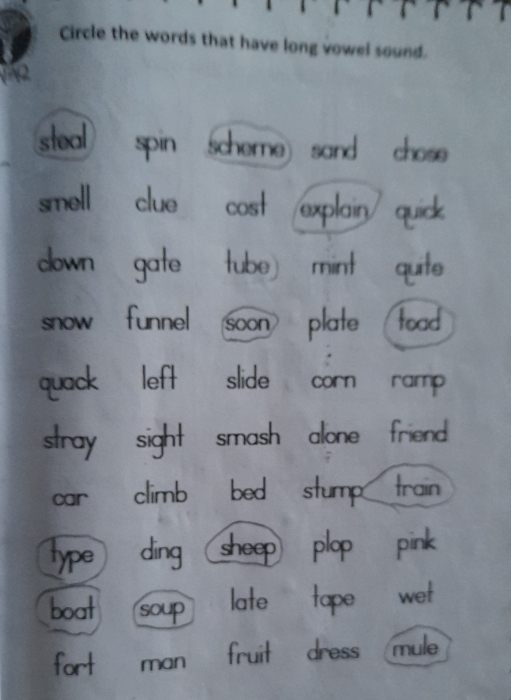 Circle the words that have long vowel sound.
steal spin scheme sand chose
smell clue cost explain quick
down gate tube mint quite
snow funnel soon plate toad
quack left slide corn ramp
stray sight smash alone friend
car climb bed stump train
type ding sheep plop pink
boat soup late tape wet
fort man fruit dress mule